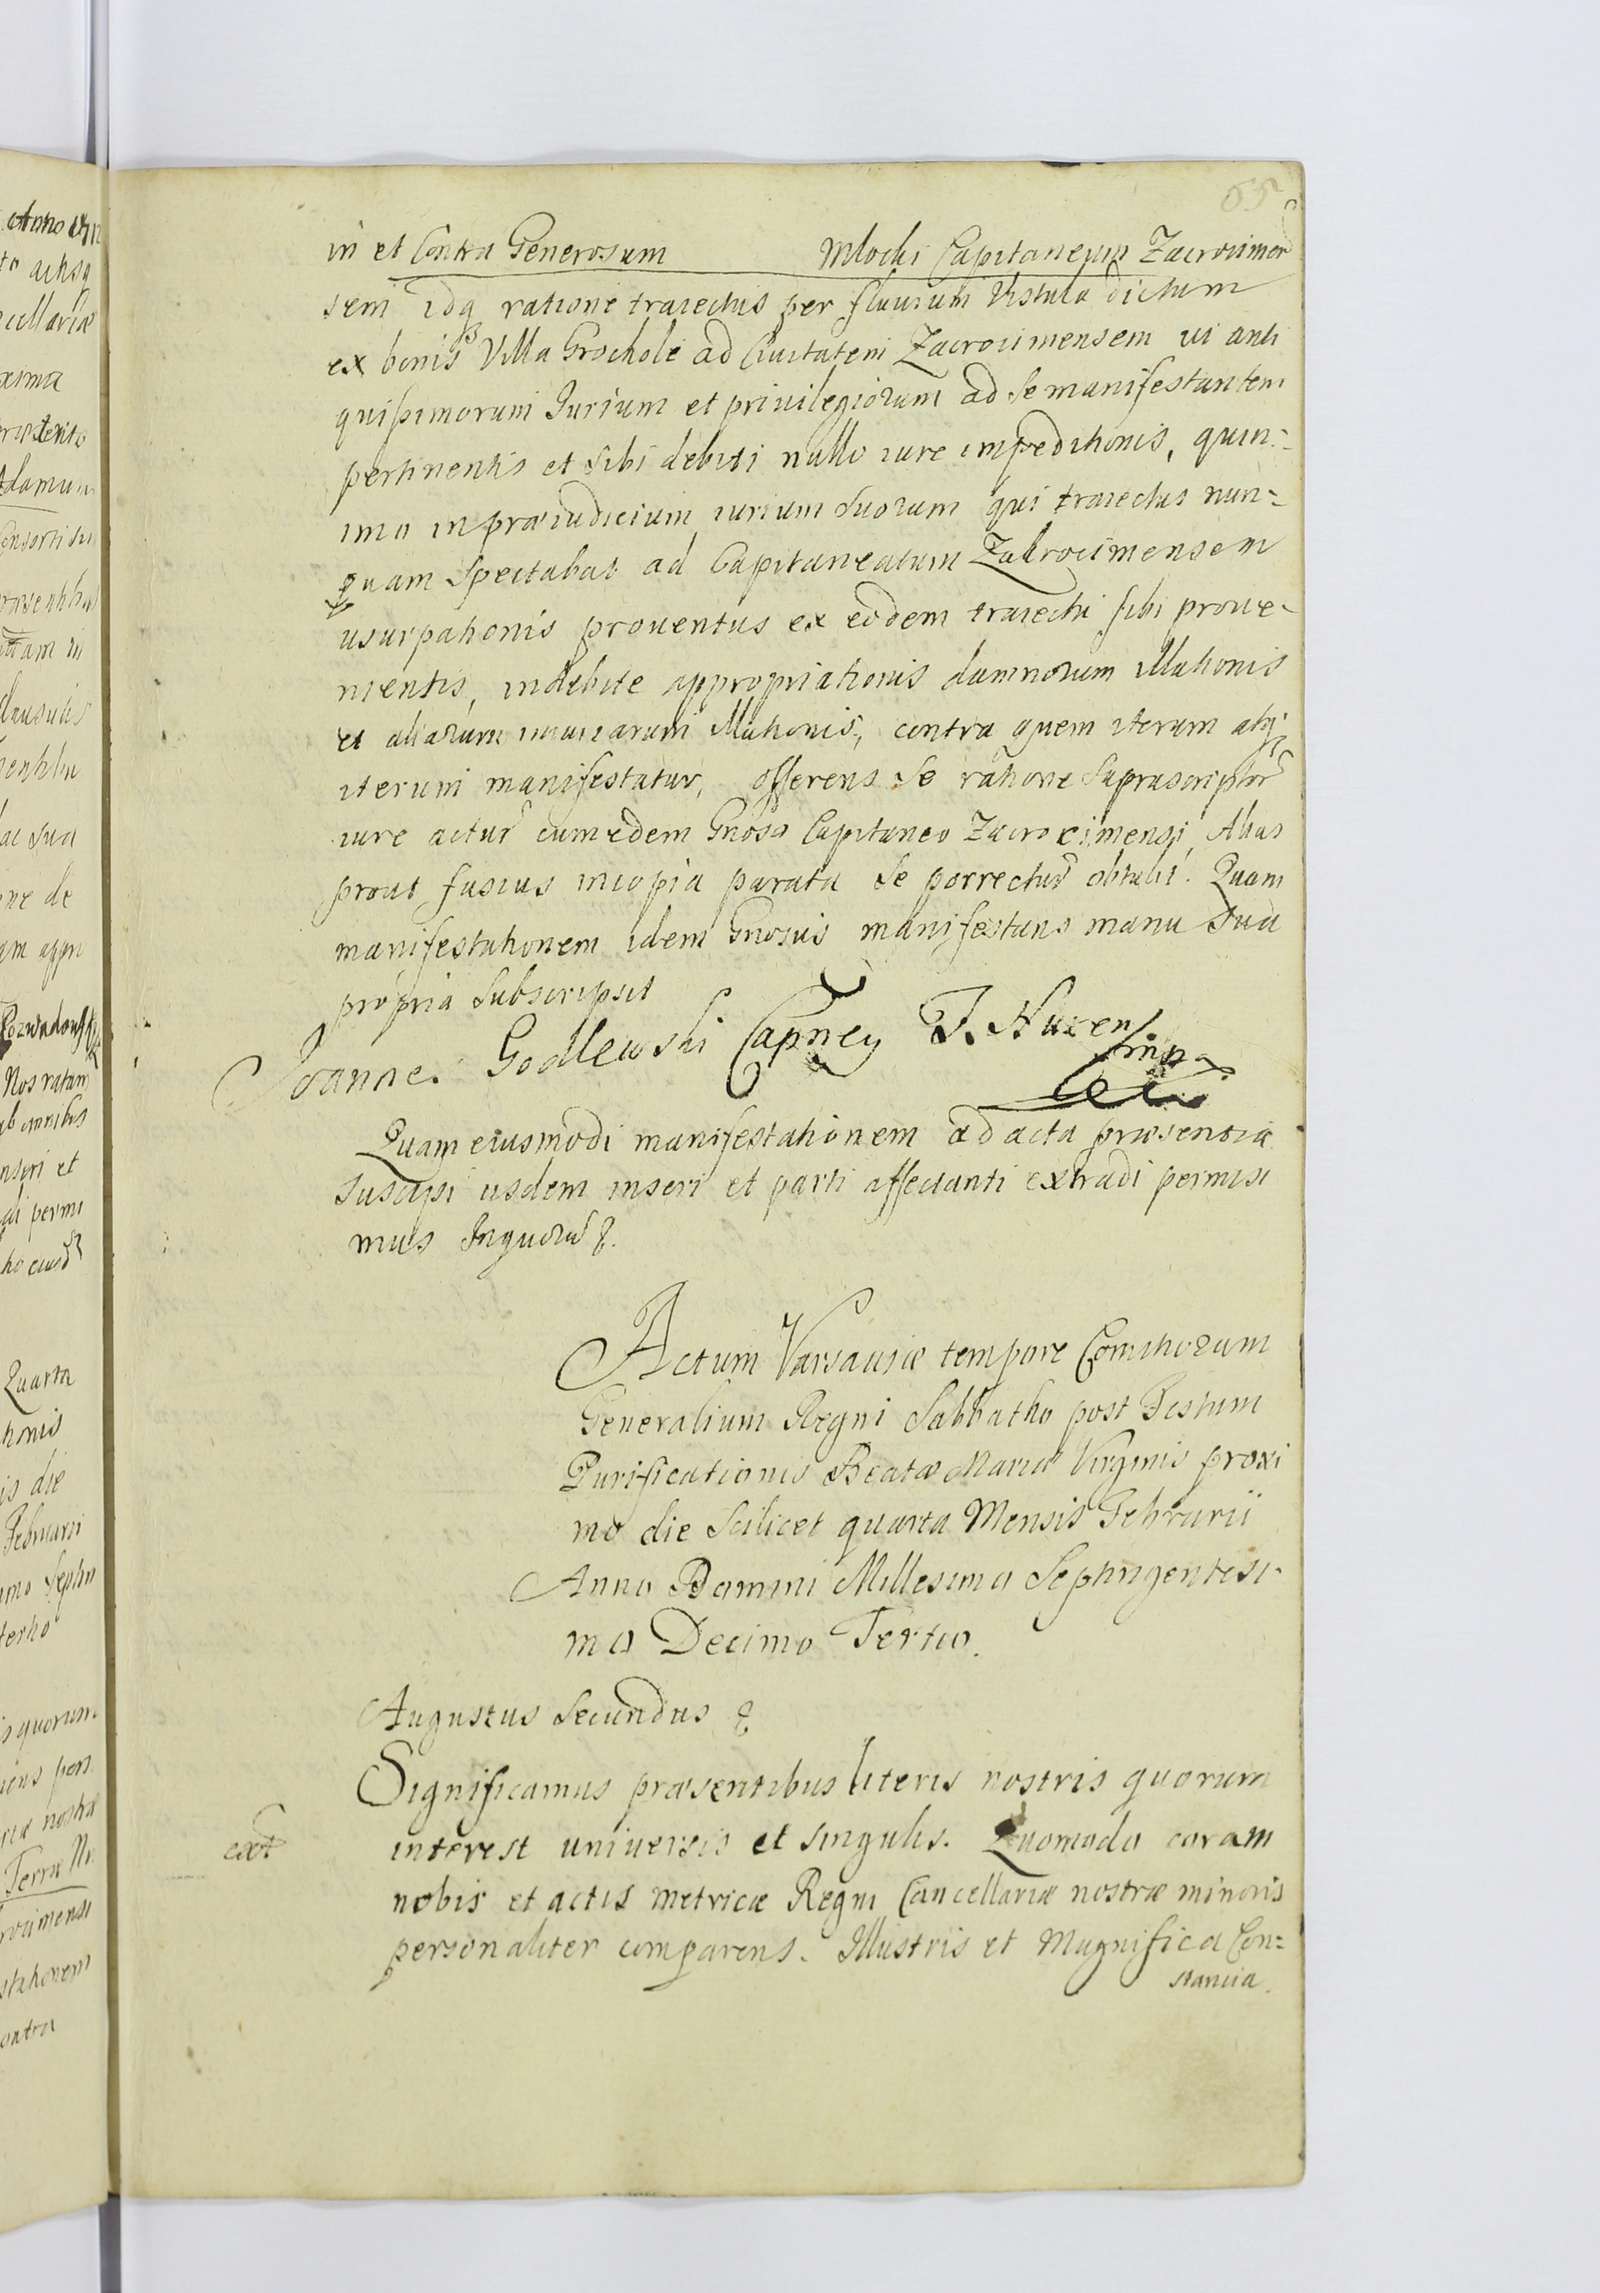 65
in et Contra Generosum Mlocki Capitaneum Zacrocimen
sem idq ratione traiectus per fluuium Vistula dictum
ex bonis Villa Grochole ad Ciuitatem Zacrocimensem ui anti
quissimorum Iurium et priuilegiorum ad se manifestantem
pertinentis et sibi debiti nullo iure impeditionis, quin=
imo in præiudicium iurium suorum qui traiectus nun=
quam spectabat ad Capitaneatum Zakrocimensem
usurpationis prouentus ex eodem traiectu sibi proue-
nientis, indebite appropriationis damnorum illationis
et aliarum iniuriarum illationis, contra quem iterum atq
iterum manifestatur, offerens se ratione suprascriptor
iure actur cum eodem Gnoso Capitaneo Zacrocimensi, Alias
prout fusius in copia parata se porrectur obtulit. Quam
manifestationem idem Gnosus manifestans manu sua
propria subscripsit
Joannes Godlewski Capney T. Nuren
mp
Quam eiusmodi manifestationem ad acta præsentia
suscipi iisdem inseri et parti affectanti extradi permisi
mus Inquoru &.
Actum Varsauiæ tempore Comitiorum
Generalium Regni Sabbatho post Festum
Purificationis Beatæ Mariæ Virginis proxi
mo die scilicet quarta Mensis Februarii
Anno Domini Millesimo Septingentesi-
mo Decimo Tertio.
Augustus Secundus &
Significamus præsentibus literis nostris quorum
ext interest uniuersis et singulis. Quomodo coram
nobis et actis Metricæ Regni Cancellariæ nostræ minoris
personaliter comparens. Illustris et Magnifica Con=
stancia.